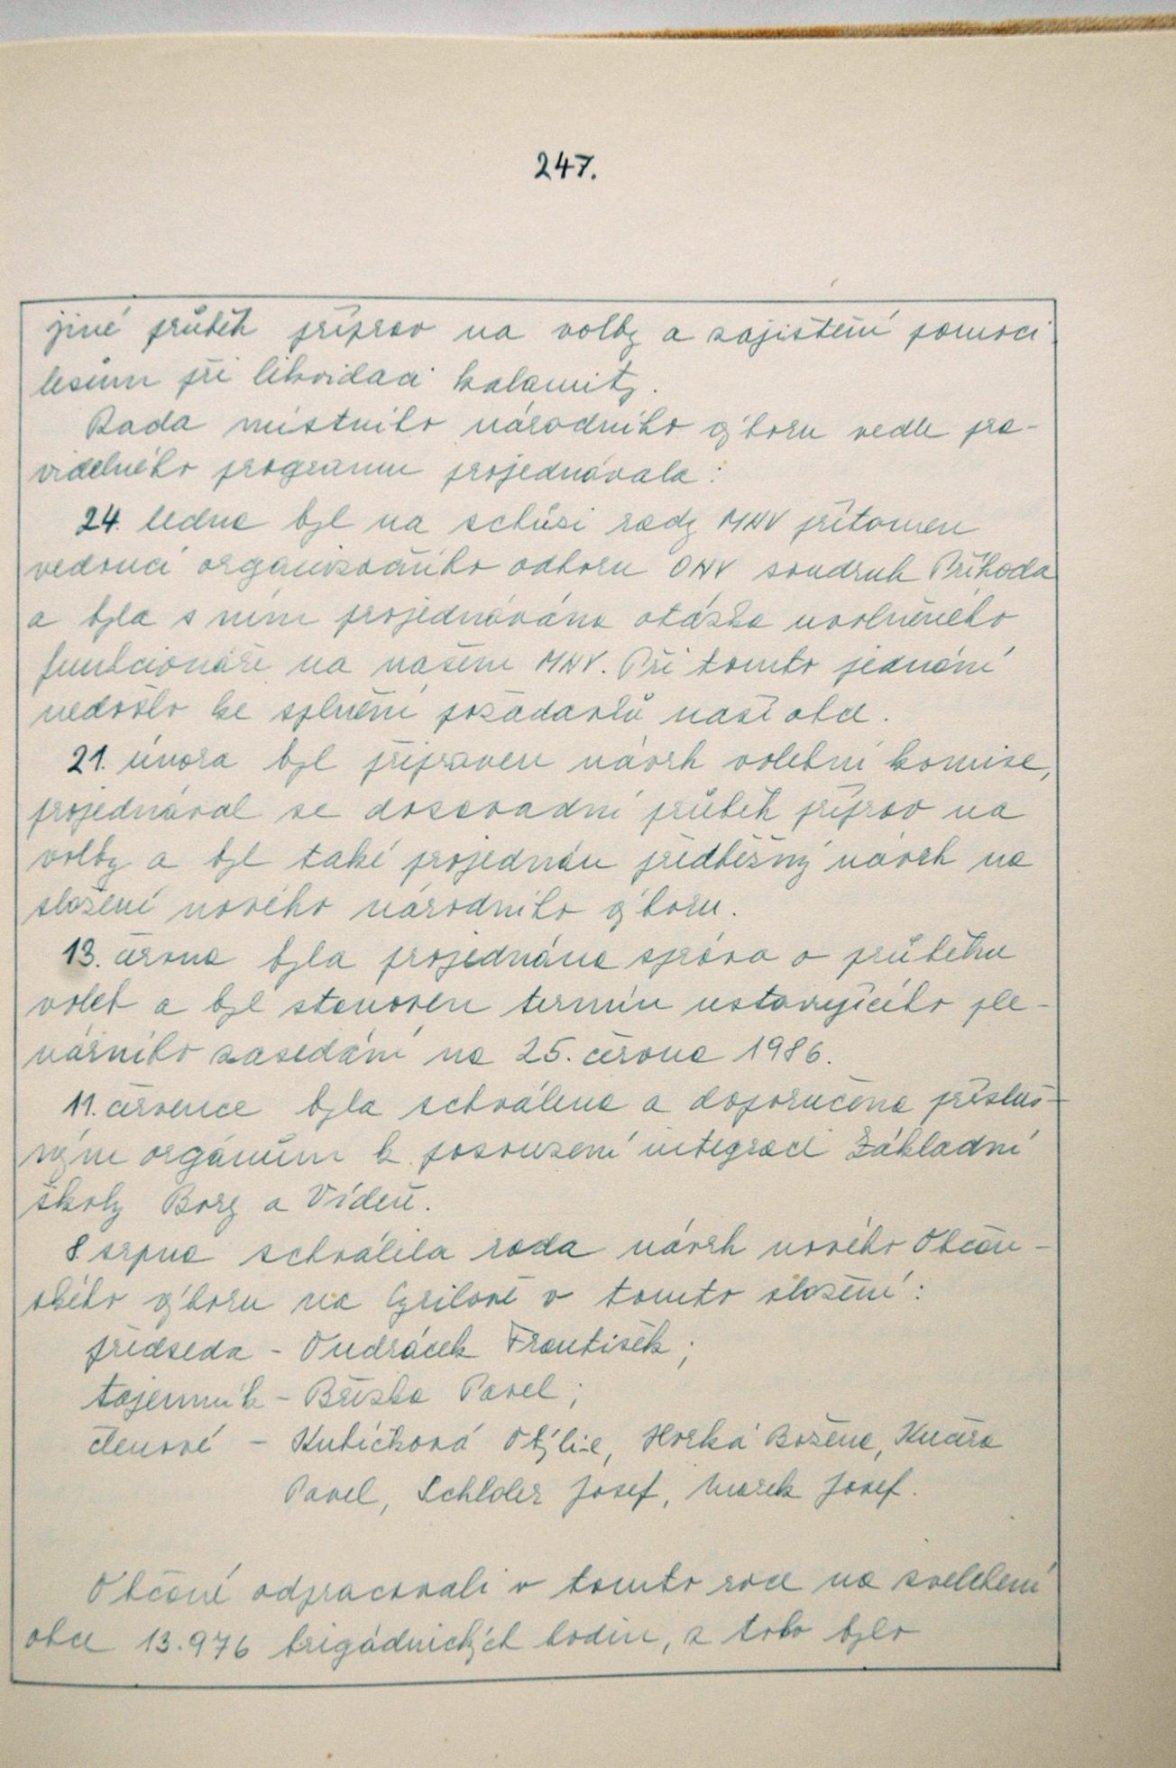 247.
jiné průběh příprav na volby a zajištění pomoci
lesům při likvidaci kalamity.
Rada místního národního výboru vedle pra-
videlného programu projednávala:
24. ledna byl na schůzi rady MNV přítomen
vedoucí organizačního odboru ONV soudruh Příhoda
a byla s ním projednávána otázka uvolněného
funkcionáře na našem MNV. Při tomto jednání
nedošlo ke splnění požadavků naší obce.
21. února byl připraven návrh volební komise,
projednával se dosavadní průběh příprav na
volby a byl také projednán předběžný návrh na
složení nového národního výboru.
13. června byla projednána zpráva o průběhu
voleb a byl stanoven termín ustavujícího ple-
nárního zasedání na 25. června 1986.
11. července byla schválena a doporučena přísluš-
ným orgánům k posouzení integrace Základní
školy Bory a Vídeň.
8 srpna schválila rada návrh nového Občan-
ského výboru na Cyrilově v tomto složení:
předseda - Ondráček František;
tajemník - Bříza Pavel;
členové - Kubíčková Otýlie, Horká Božena, Kučera
Pavel, Josef, Marek Josef.
Občané odpracovali v tomto roce na zvelebení
obce 13.976 brigádnických hodin, z toho bylo